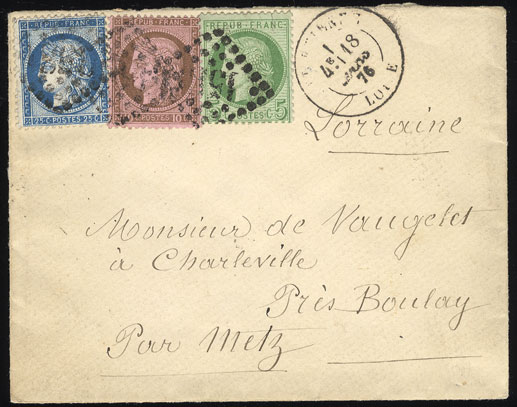 REPUB. FRANC.
25 C. POSTES 25 C.
REPUB. FRANC.
POSTES 10
REPUB. FRANC.
POSTES 5
1
18
76
LOT E
Lorraine
Monsieur de Vaugelet
à Charleville
Près Boulay
Par Metz